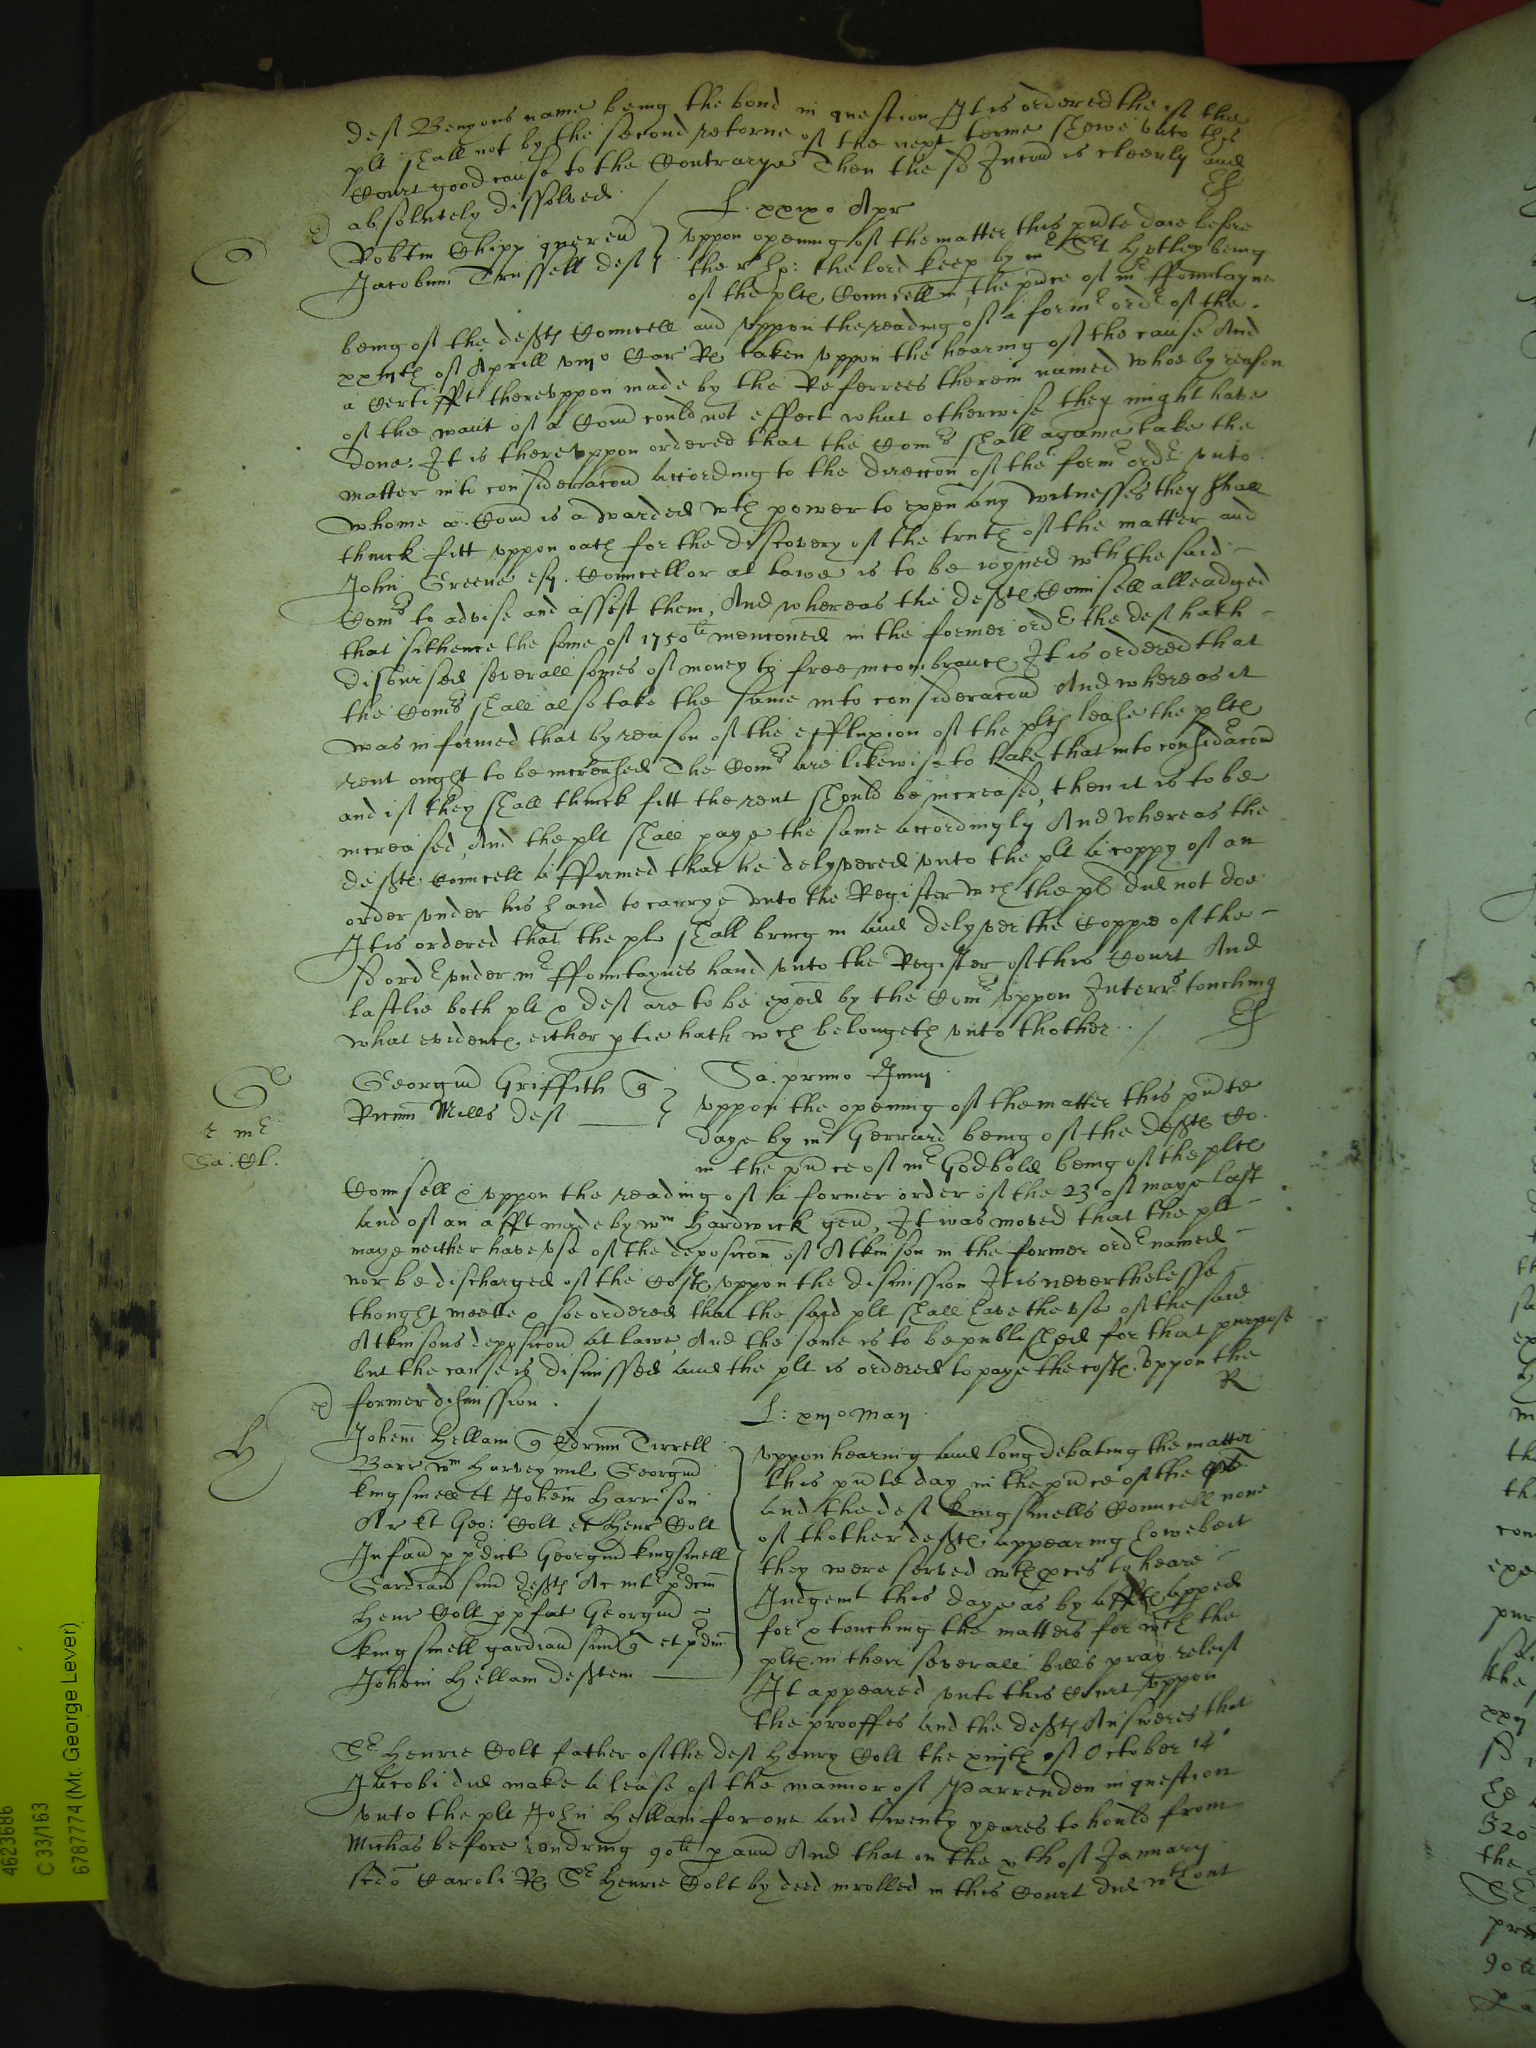 deft Benyons name being the bond in question It is ordered the if the
plt shall not by the second retorne of the next terme shewe unto this
Court good cause to the Contrarye Then the sd Iniuncc̄on is cleerly and
absolutely dissolved
C
L. xxixo Apr
Robtm Chipp queren
Jacobum Trussell deft
Uppon opening of the matter this pñte daie before
the r: hp: the lord keep by mr Srt being
of the pltes Councell in the pñce of mr ffountayne
being of the defts Councell and uppon the reading of a formr ordr of the
xxiijth of Aprill vijo Car Rs taken uppon the hearing of the cause And
a Certifft thereuppon made by the Referrees therein named whoe by reason
of the want of a Com̄ could not effect what otherwise they might have
done. It is thereuppon ordered that the Comrs shall againe take the
matter into considerac̄on according to the direcc̄on of the formr ordr unto
whome a Com̄ is awarded wth power to exam̄ any witnesses they shall
thinck fitt uppon oath for the discovery of the truth of the matter and
John Greene esq. Councellor at lawe is to be ioyned wth the said
Comrs to advise and assist them, And whereas the defts Counsell alleadged
that sithence the some of 1750li menc̄oned in the former ordr the deft hath
disbursed severall somes of money to free incombrances It is ordered that
the Comrs shall also take the same into considerac̄on And whereas it
was informed that by reason of the effluxion of the plts lease the pltes
rent ought to be increased The Comrs are likewise to take that into considrac̄on
and if they shall thinck fitt the rent should be increased, then it is to be
increased, And the plt shall paye the same accordingly And whereas the
defts Councell affirmed that he delyvered unto the plt a coppy of an
order under his hand to carrye unto the Register wch the plt did not doe
It is ordered that the plt shall bring in and delyver the Coppie of the
sd ordr under mr ffountaynes hand unto the Register of this Court And
lastlie both plt & deft are to be exam̄ed by the Comrs uppon Interrs touching
what evidence either ptie hath wch belongeth unto thother
G
r mr
Sa. Cl.
Sa. primo Junij
Georgiū Griffith q
Ricum̄ Mills deft
Uppon the opening of the matter this pñte
daye by mr Gerrard being of the defts Co.
in the pñce of mr Godbold being of the pltes
Counsell & uppon the reading of a former order of the 23 of maye last
and of an afft made by wm Hardwick gen̄, It was moved that the plt
maye neither have use of the deposic̄on of Atkinson in the former ordr named
nor be discharged of the Costs uppon the dismission It is neverthelesse
thought meete & soe ordered that the said plt shall have the use of the said
Atkinsons deposic̄on at lawe, And the same is to be published for that purpose
but the cause is dismissed and the plt is ordered to paye the costs uppon the
former dismission.
R
H
L: xiijo May
Johem̄ Hellam q Edrum̄ Tirrell
Barr wm Harvey mil Georgiū
kingsmell et Johem̄ Harrison
Ar Et Geo: Colt et Henr Colt
Infan̄ p pdict Georgiū kingsmell
Gardian̄ suū defts Ac intr pdcm̄
Henr Colt p pfat Georgiū
kingsmell gardian̄ suū q et pdcm̄
Johem̄ Hellam deftem
Uppon hearing and long debating the matter
this pñte day in the pñce of the plt
and the deft kingsmells Councell none
of thother defts appearing howebeit
they were served wth pces to heare
Judgemt this daye as by affts apped
for & touching the matters for wch the
pltes in their severall bills pray releif
It appeared unto this Court uppon
the prooffes and the defts Answeres that
Sr Henrie Colt father of the deft Henry Colt the xiiijth of October 14o
Jacobi did make a lease of the mannor of Parrenden in question
unto the plt John Hellam for one and twenty yeares to hould from
Michas before rendring 90li p ann̄ And that on the vth of January
scdo Caroli Rs Sr Henrie Colt by deed inrolled in this Court did wthout
4623686
C 33/163
6787774 (Mt. George Lever)